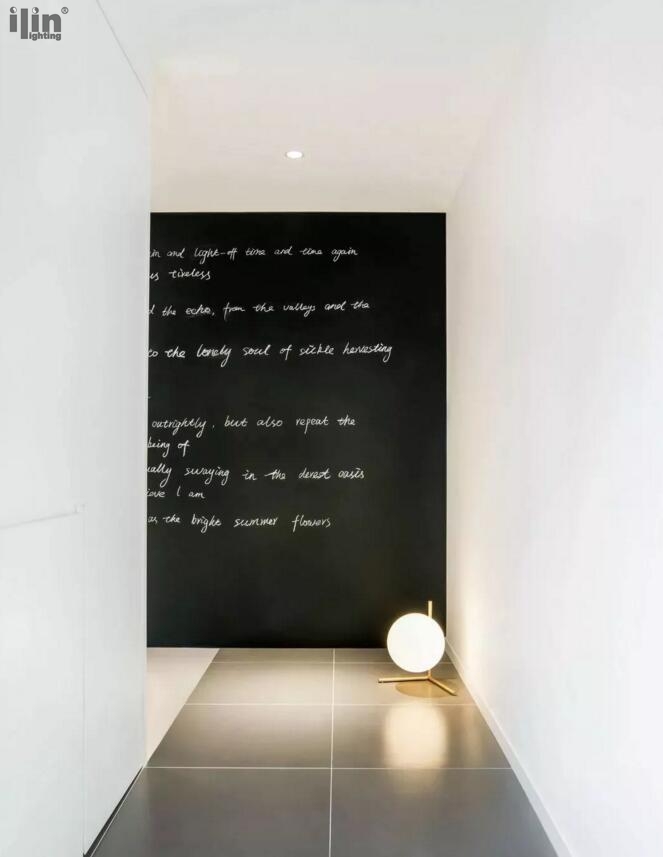 ilin®
lighting
in and light-off time and time again
us tireless
d the echo, from the valleys and the
to the lonely soul of sickle harvesting
outrightly, but also repeat the
being of
ually swaying in the derest oasis
ieve I am
as the bright summer flowers